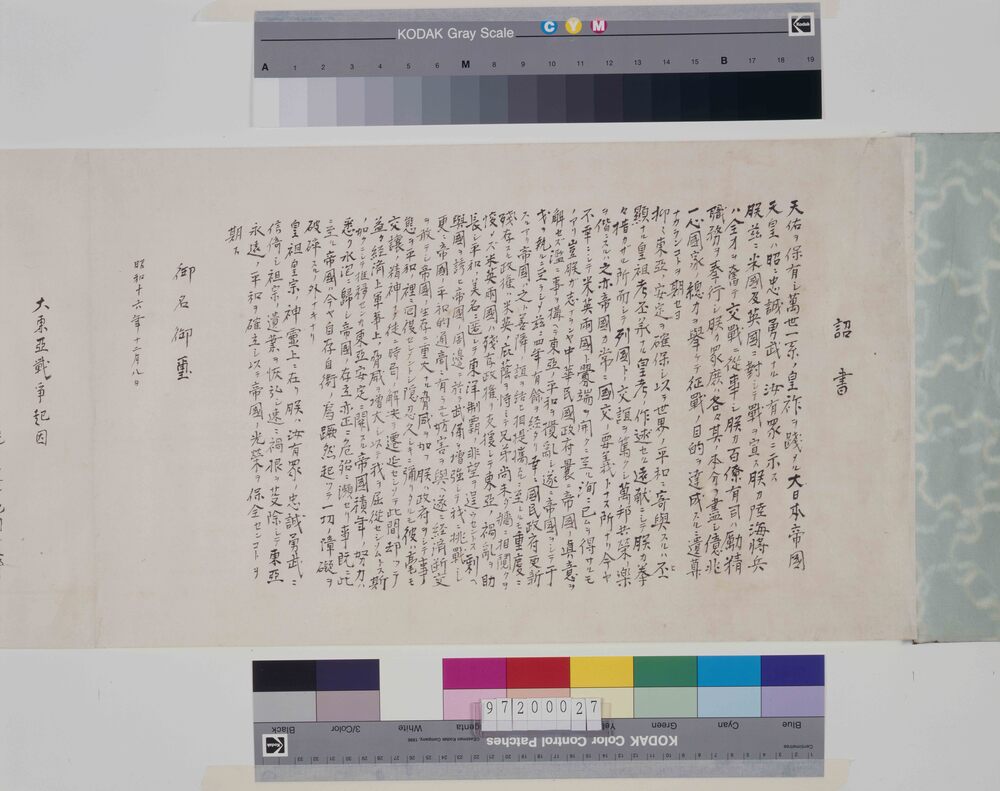 KODAK Gray Scale
C Y M
Kodak
A 1 2 3 4 5 6 M 8 9 10 11 12 13 14 15 B 17 18 19
詔書
天佑ヲ保有シ萬世一系ノ皇祚ヲ踐メル大日本帝國
天皇ハ昭ニ忠誠勇武ナル汝有衆ニ示ス
朕茲ニ米國及英國ニ對シテ戰ヲ宣ス朕カ陸海將兵
ハ全力ヲ奮テ交戰ニ從事シ朕カ百僚有司ハ勵精
職務ヲ奉行シ朕カ衆庶ハ各々其ノ本分ヲ盡シ億兆
一心國家ノ總力ヲ擧ケテ征戰ノ目的ヲ達成スルニ遺算
ナカランコトヲ期セヨ
抑々東亞ノ安定ヲ確保シ以テ世界ノ平和ニ寄與スルハ丕
顯ナル皇祖考丕承ナル皇考ノ作述セル遠猷ニシテ朕カ拳
々措カサル所而シテ列國トノ交誼ヲ篤クシ萬邦共榮ノ樂
ヲ偕ニスルハ之亦帝國カ常ニ國交ノ要義トナス所ナリ今ヤ
不幸ニシテ米英兩國ト釁端ヲ開クニ至ル洵ニ已ムヲ得サルモ
ノアリ豈朕カ志ナランヤ中華民國政府曩ニ帝國ノ眞意ヲ
解セズ濫ニ事ヲ構ヘテ東亞ノ平和ヲ攪亂シ遂ニ帝國ヲシテ干
戈ヲ執ルニ至ラシメ茲ニ四年有餘ヲ經タリ幸ニ國民政府更新
スルアリ帝國ハ之ト善隣ノ誼ヲ結ヒ相提攜スルニ至レルモ重慶ニ
殘存スル政權ハ米英ノ庇蔭ヲ恃ミテ兄弟尚未タ牆ニ相鬩クヲ
悛メズ米英兩國ハ殘存政權ヲ支援シテ東亞ノ禍亂ヲ助
長シ平和ノ美名ニ匿レテ東洋制覇ノ非望ヲ逞ウセントス剩ヘ
與國ヲ誘ヒ帝國ノ周邊ニ於テ武備ヲ増強シテ我ニ挑戰シ
更ニ帝國ノ平和的通商ニ有ラユル妨害ヲ與ヘ遂ニ經濟斷交
ヲ敢テシ帝國ノ生存ニ重大ナル脅威ヲ加フ朕ハ政府ヲシテ事
態ヲ平和ノ裡ニ回復セシメントシ隱忍久シキニ彌リタルモ彼ハ毫モ
交讓ノ精神ナク徒ニ時局ノ解決ヲ遷延セシメテ此間却ツテ
益々經濟上軍事上ノ脅威ヲ増大シ以テ我ヲ屈從セシメントス斯
ノ如クニシテ推移センカ東亞安定ニ關スル帝國積年ノ努力ハ
悉ク水泡ニ歸シ帝國ノ存立亦正ニ危殆ニ瀕セリ事既ニ此
ニ至ル帝國ハ今ヤ自存自衛ノ爲蹶然起ツテ一切ノ障礙ヲ
破碎スルノ外ナキナリ
皇祖皇宗ノ神靈上ニ在リ朕ハ汝有衆ノ忠誠勇武ニ
信倚シ祖宗ノ遺業ヲ恢弘シ速ニ禍根ヲ芟除シテ東亞
永遠ノ平和ヲ確立シ以テ帝國ノ光榮ヲ保全センコトヲ
期ス
御名御璽
昭和十六年十二月八日
大東亞戰爭起因
97200027
Blue Cyan Green Yel genta White 3/Color Black
KODAK Color Control Patches
©Eastman Kodak Company, 1996
Centimetres
Kodak